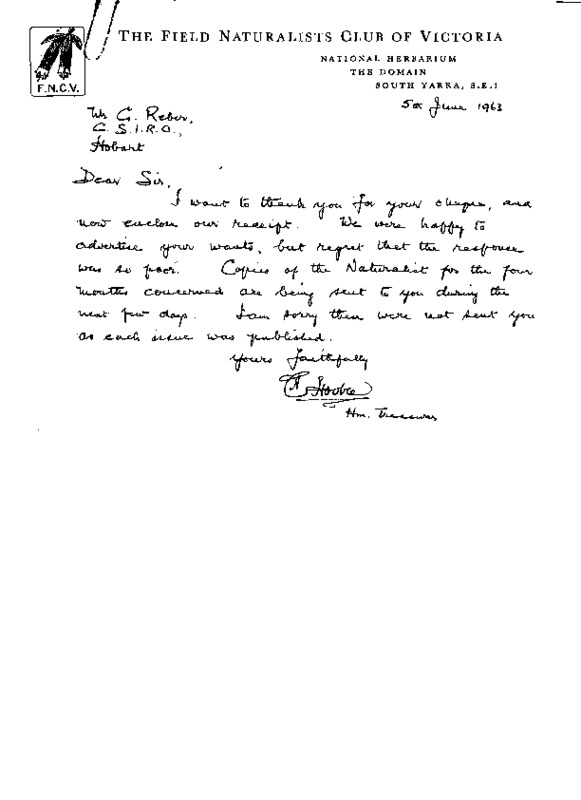 THE FIELD NATURALISTS CLUB OF VICTORIA
F.N.C.V.
NATIONAL HERBARIUM
THE DOMAIN
SOUTH YARRA, S.E.1
5th June 1963
Mr G. Reber,
C.S.I.R.O.,
Hobart
Dear Sir,
I want to thank you for your cheque, and
now enclose our receipt. We were happy to
advertise your wants, but regret that the response
was so poor. Copies of the Naturalist for the four
months concerned are being sent to you during the
next few days. I am sorry they were not sent you
as each issue was published.
Yours faithfully
Hon. Treasurer